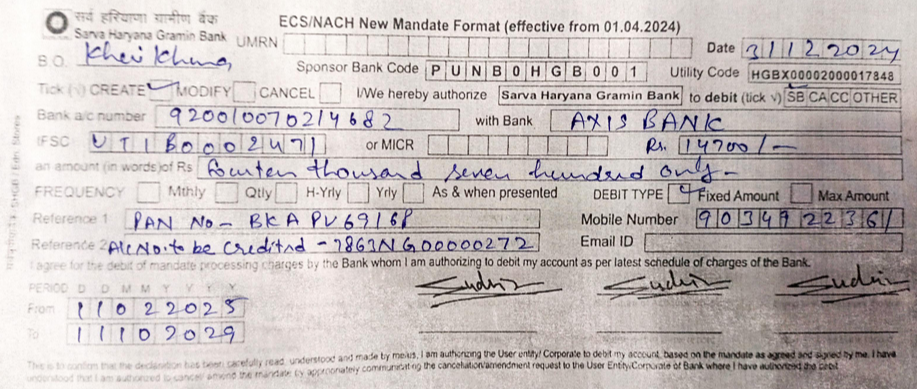 सर्व हरियाणा ग्रामीण बैंक
Sarva Haryana Gramin Bank
ECS/NACH New Mandate Format (effective from 01.04.2024)
UMRN
Date 31122024
B.O. Kheri
Sponsor Bank Code PUNB0HGB001 Utility Code HGBX00002000017848
Tick (√) CREATE ✓ MODIFY CANCEL I/We hereby authorize Sarva Haryana Gramin Bank to debit (tick √) SB CA CC OTHER
Bank a/c number 920010070214682 with Bank AXIS BANK
IFSC UTIB0002471 or MICR Rs. 14700/-
an amount (in words) of Rs fourten thousand seven hundred only -
FREQUENCY Mthly Qtly H-Yrly Yrly As & when presented DEBIT TYPE ✓ Fixed Amount Max Amount
Reference 1 PAN No - BKAPV6916P Mobile Number 9034922361
Reference 2 A/c No. to be Creditnd - 7863NG00000272 Email ID
I agree for the debit of mandate processing charges by the Bank whom I am authorizing to debit my account as per latest schedule of charges of the Bank.
PERIOD D D M M Y Y Y Y
From 11022025
To 11102029
This is to confirm that the declaration has been carefully read, understood and made by me/us, I am authorizing the User entity/ Corporate to debit my account, based on the mandate as agreed and signed by me. I have
understood that I am authorized to cancel/ amend the mandate by appropriately communicating the cancelation/amendment request to the User Entity/Corporate of Bank where I have authorized the debit